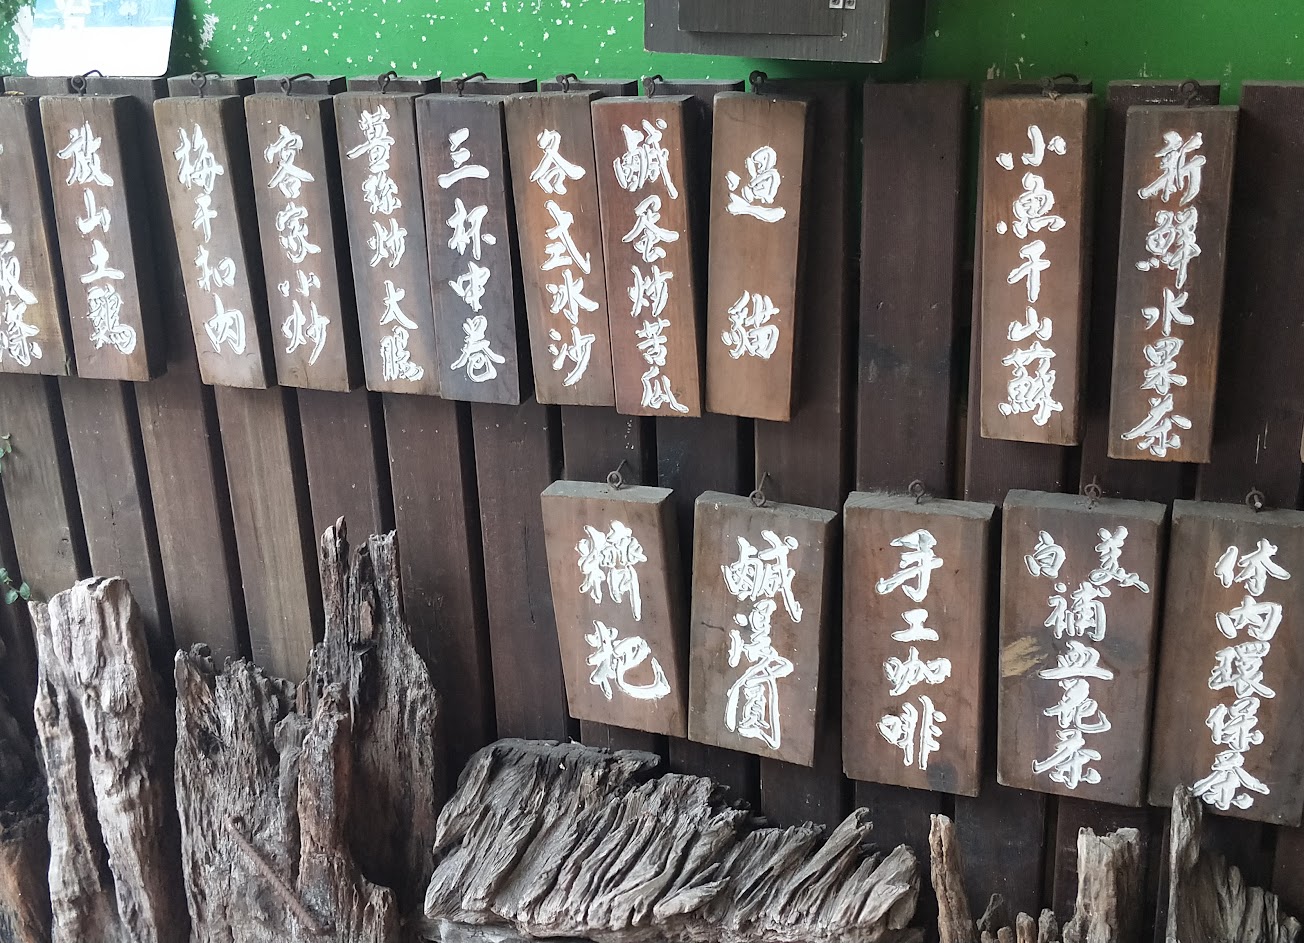 新鮮水果茶
小魚干山蘇
過貓
鹹蛋炒苦瓜
各式冰沙
三杯中卷
薑絲炒大腸
客家小炒
梅干扣肉
放山土鷄
條
体内環保茶
美白補血花茶
手工咖啡
鹹湯圓
粑